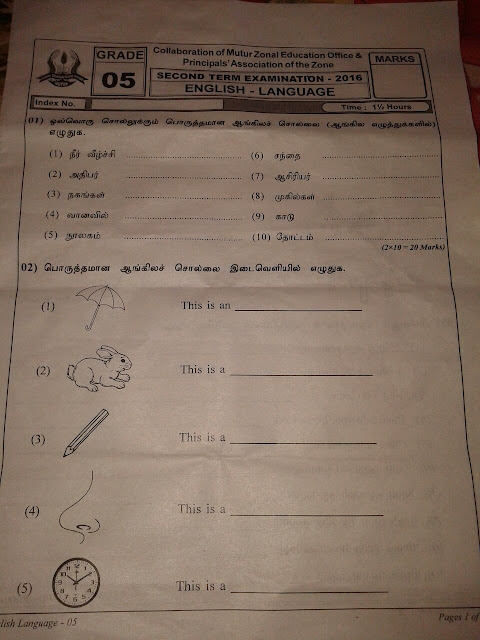 GRADE
05
Collaboration of Mutur Zonal Education Office &
Principals' Association of the Zone
SECOND TERM EXAMINATION - 2016
ENGLISH - LANGUAGE
MARKS
Index No.
Time : 1½ Hours
01) ஒவ்வொரு சொல்லுக்கும் பொருத்தமான ஆங்கிலச் சொல்லை (ஆங்கில எழுத்துக்களில்)
எழுதுக.
(1) நீர் வீழ்ச்சி ........................ (6) சந்தை ........................
(2) அதிபர் ........................ (7) ஆசிரியர் ........................
(3) நகங்கள் ........................ (8) முகில்கள் ........................
(4) வானவில் ........................ (9) காடு ........................
(5) நூலகம் ........................ (10) தோட்டம் ........................
(2×10 = 20 Marks)
02) பொருத்தமான ஆங்கிலச் சொல்லை இடைவெளியில் எழுதுக.
(1) This is an ____________
(2) This is a ____________
(3) This is a ____________
(4) This is a ____________
(5) This is a ____________
lish Language - 05
Pages 1 of